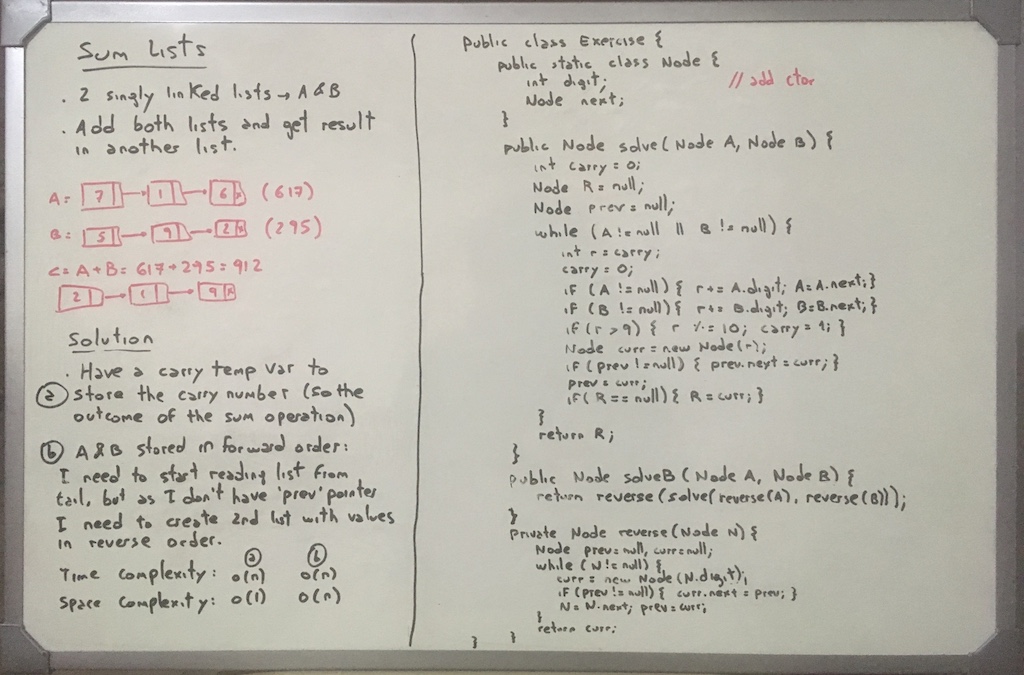 Sum Lists
. 2 singly linked lists → A & B
. Add both lists and get result
in another list.
A = 7 → 1 → 6 (617)
B = 5 → 9 → 2 (295)
C = A + B = 617 + 295 = 912
2 → 1 → 9
Solution
. Have a carry temp var to
ⓐ store the carry number (so the
outcome of the sum operation)
ⓑ A & B stored in forward order:
I need to start reading list from
tail, but as I don't have 'prev' pointer
I need to create 2nd list with values
in reverse order.
ⓐ ⓑ
Time complexity: O(n) O(n)
Space complexity: O(1) O(n)
public class Exercise {
public static class Node {
int digit; // add ctor
Node next;
}
public Node solve( Node A, Node B) {
int carry = 0;
Node R = null;
Node prev = null;
while (A != null || B != null) {
int r = carry;
carry = 0;
if (A != null) { r += A.digit; A = A.next; }
if (B != null) { r += B.digit; B = B.next; }
if (r > 9) { r %= 10; carry = 1; }
Node curr = new Node(r);
if (prev != null) { prev.next = curr; }
prev = curr;
if( R == null) { R = curr; }
}
return R;
}
public Node solveB ( Node A, Node B) {
return reverse(solve(reverse(A), reverse(B)));
}
private Node reverse(Node N) {
Node prev = null, curr = null;
while (N != null) {
curr = new Node (N.digit);
if (prev != null) { curr.next = prev; }
N = N.next; prev = curr;
}
return curr;
}
}